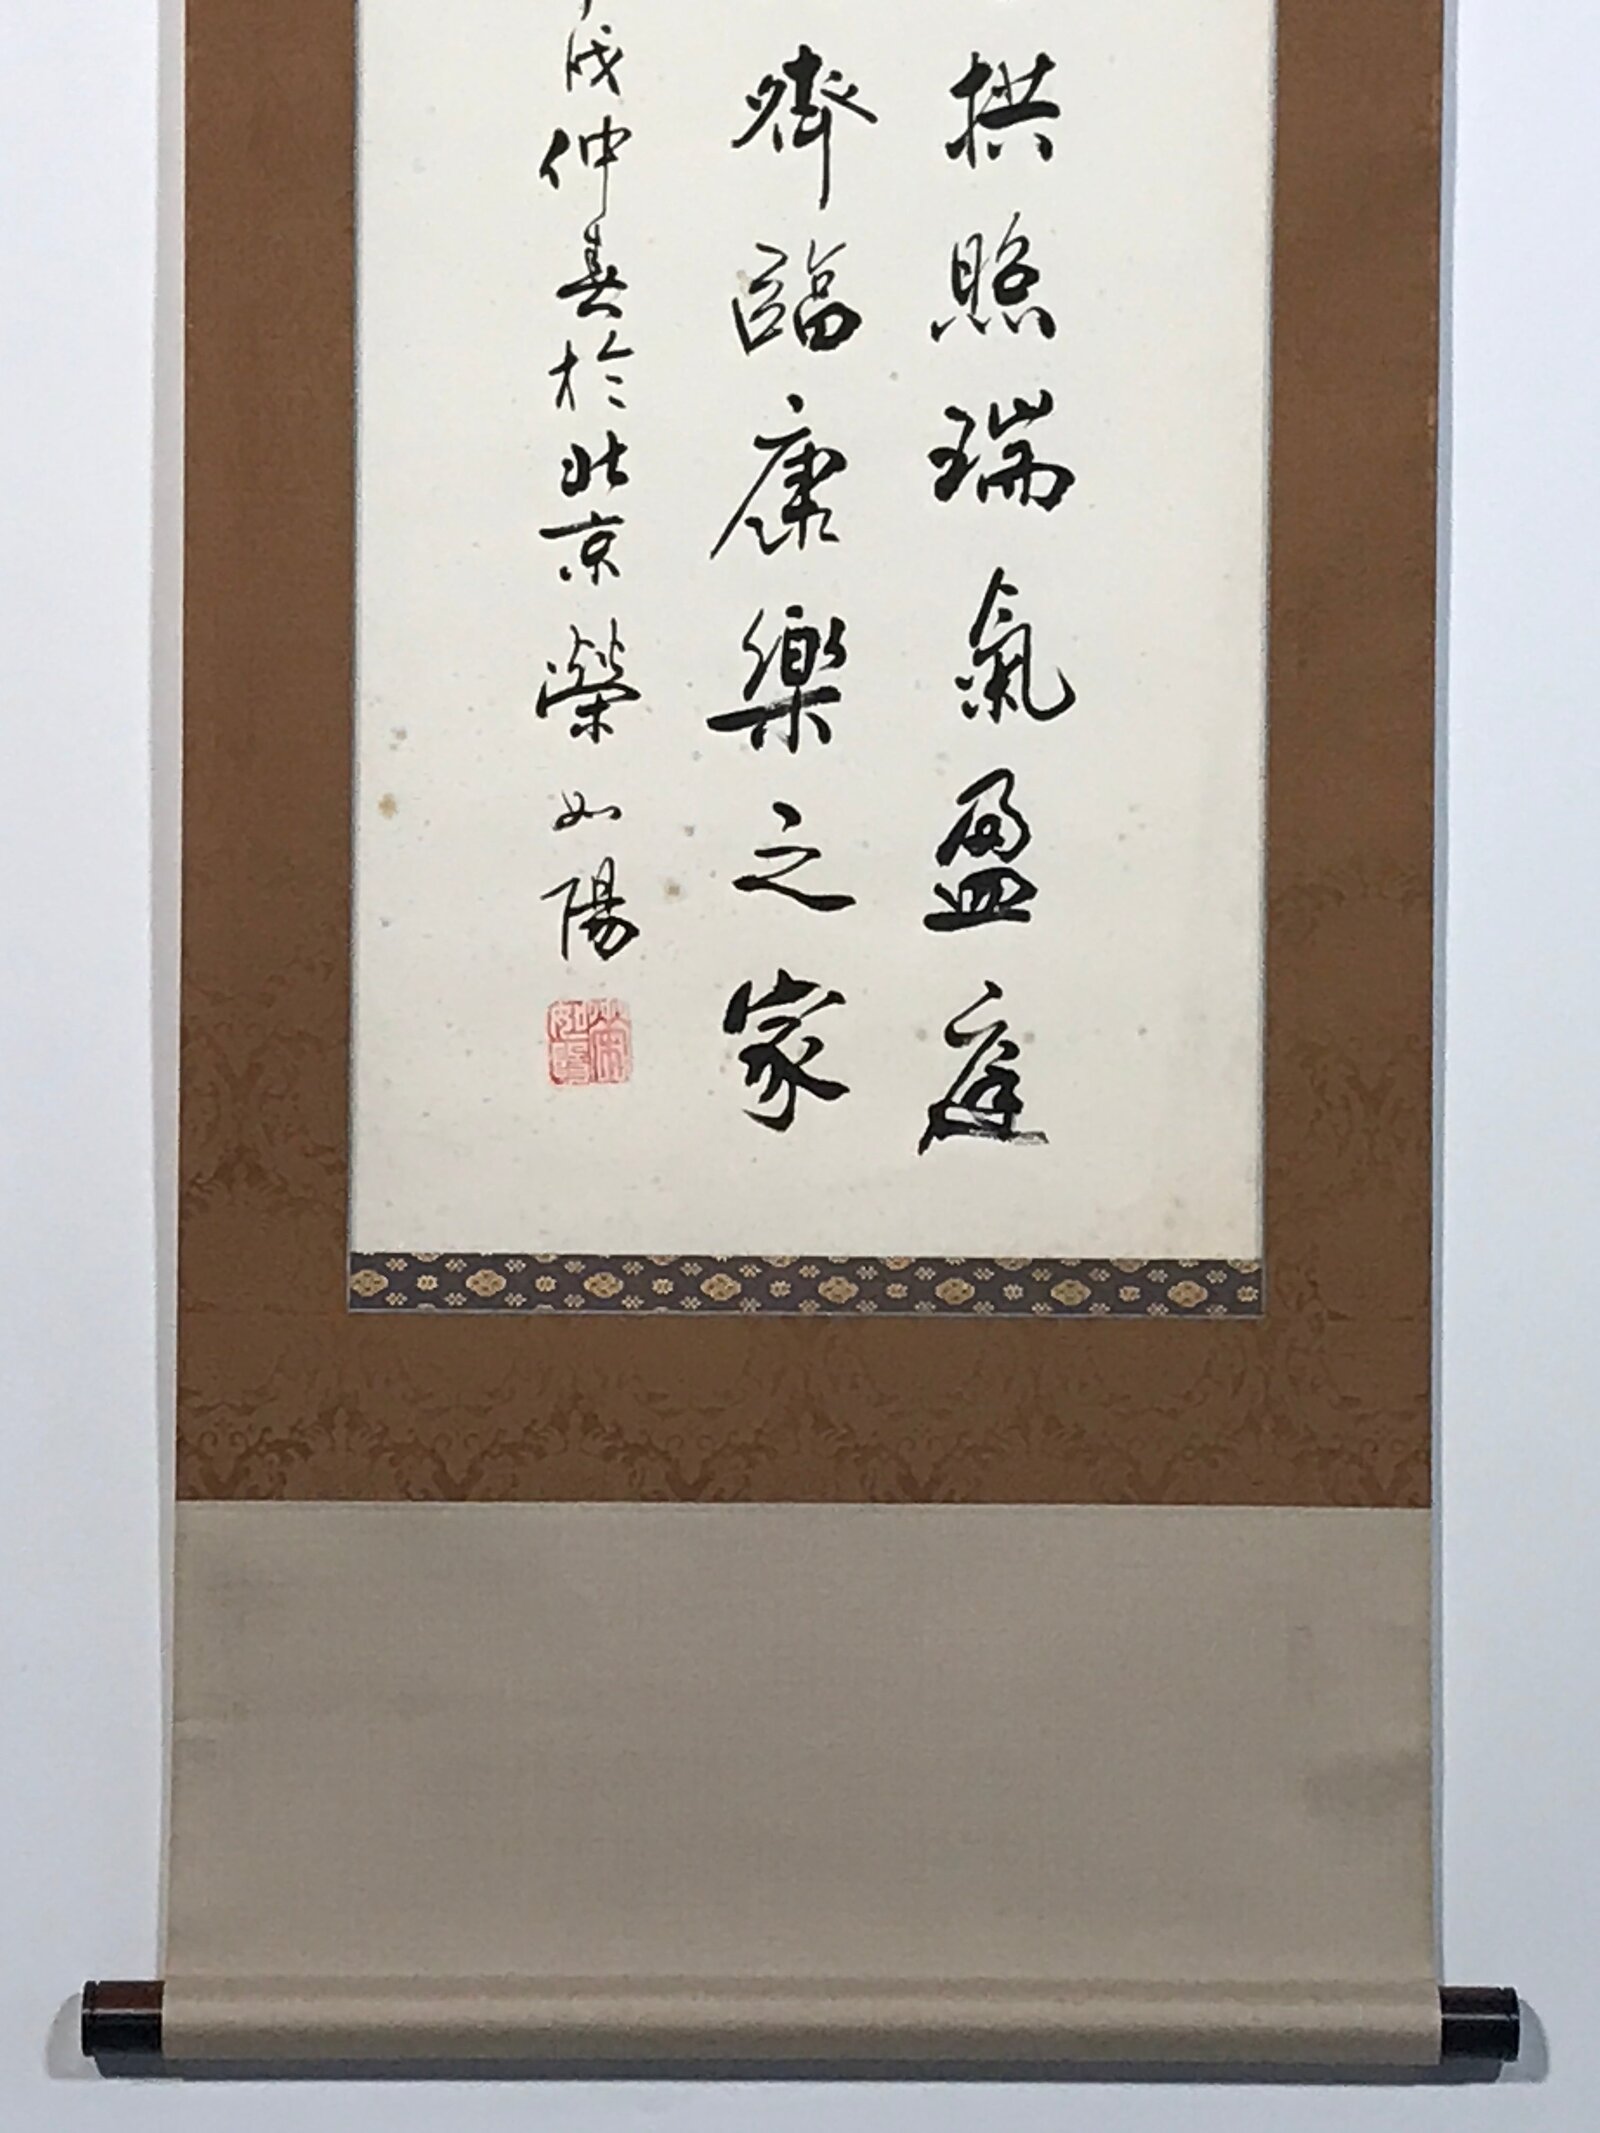 拱照瑞氣盈庭
齊臨康樂之家
戌仲春於北京榮如陽
榮如陽